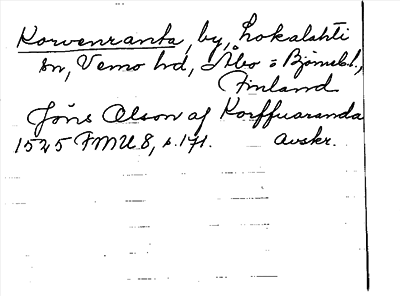 Korvenranta, by, Lokalahti
sn, Vemo hd, Åbo o Björneb. l.,
Finland
Jöns Olson af Korffuaranda
1525 FMU 8, s. 171. avskr.